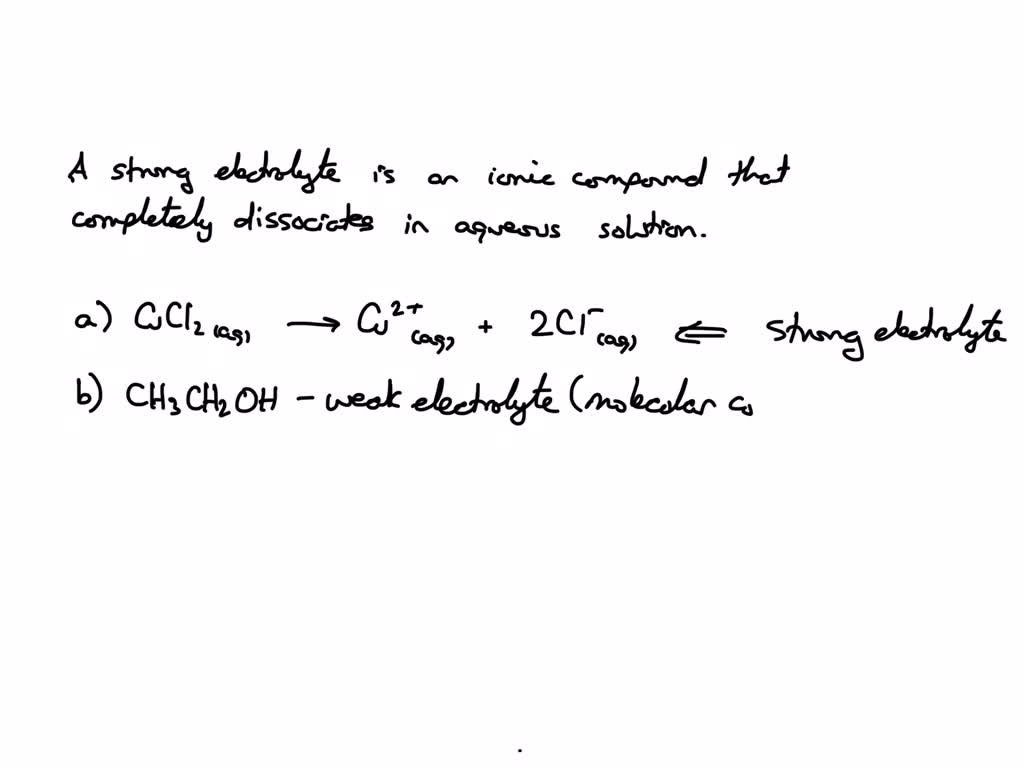 A strong electrolyte is an ionic compound that
completely dissociates in aqueous solution.
a) CuCl₂ (aq) → Cu²⁺ (aq) + 2Cl⁻ (aq) ⇐ strong electrolyte
b) CH₃CH₂OH – weak electrolyte (molecular co